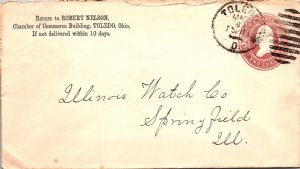 Return to ROBERT NELSON,
Chamber of Commerce Building, TOLEDO, Ohio,
If not delivered within 10 days.
TOLEDO
Illinois Watch Co
Springfield
Ill.